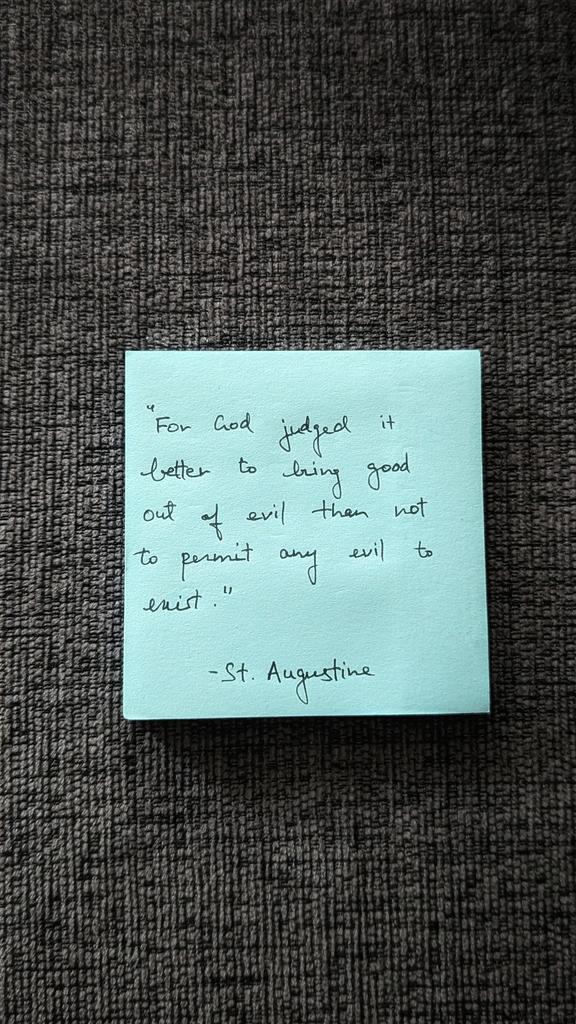 "For God judged it
better to bring good
out of evil than not
to permit any evil to
exist."
-St. Augustine